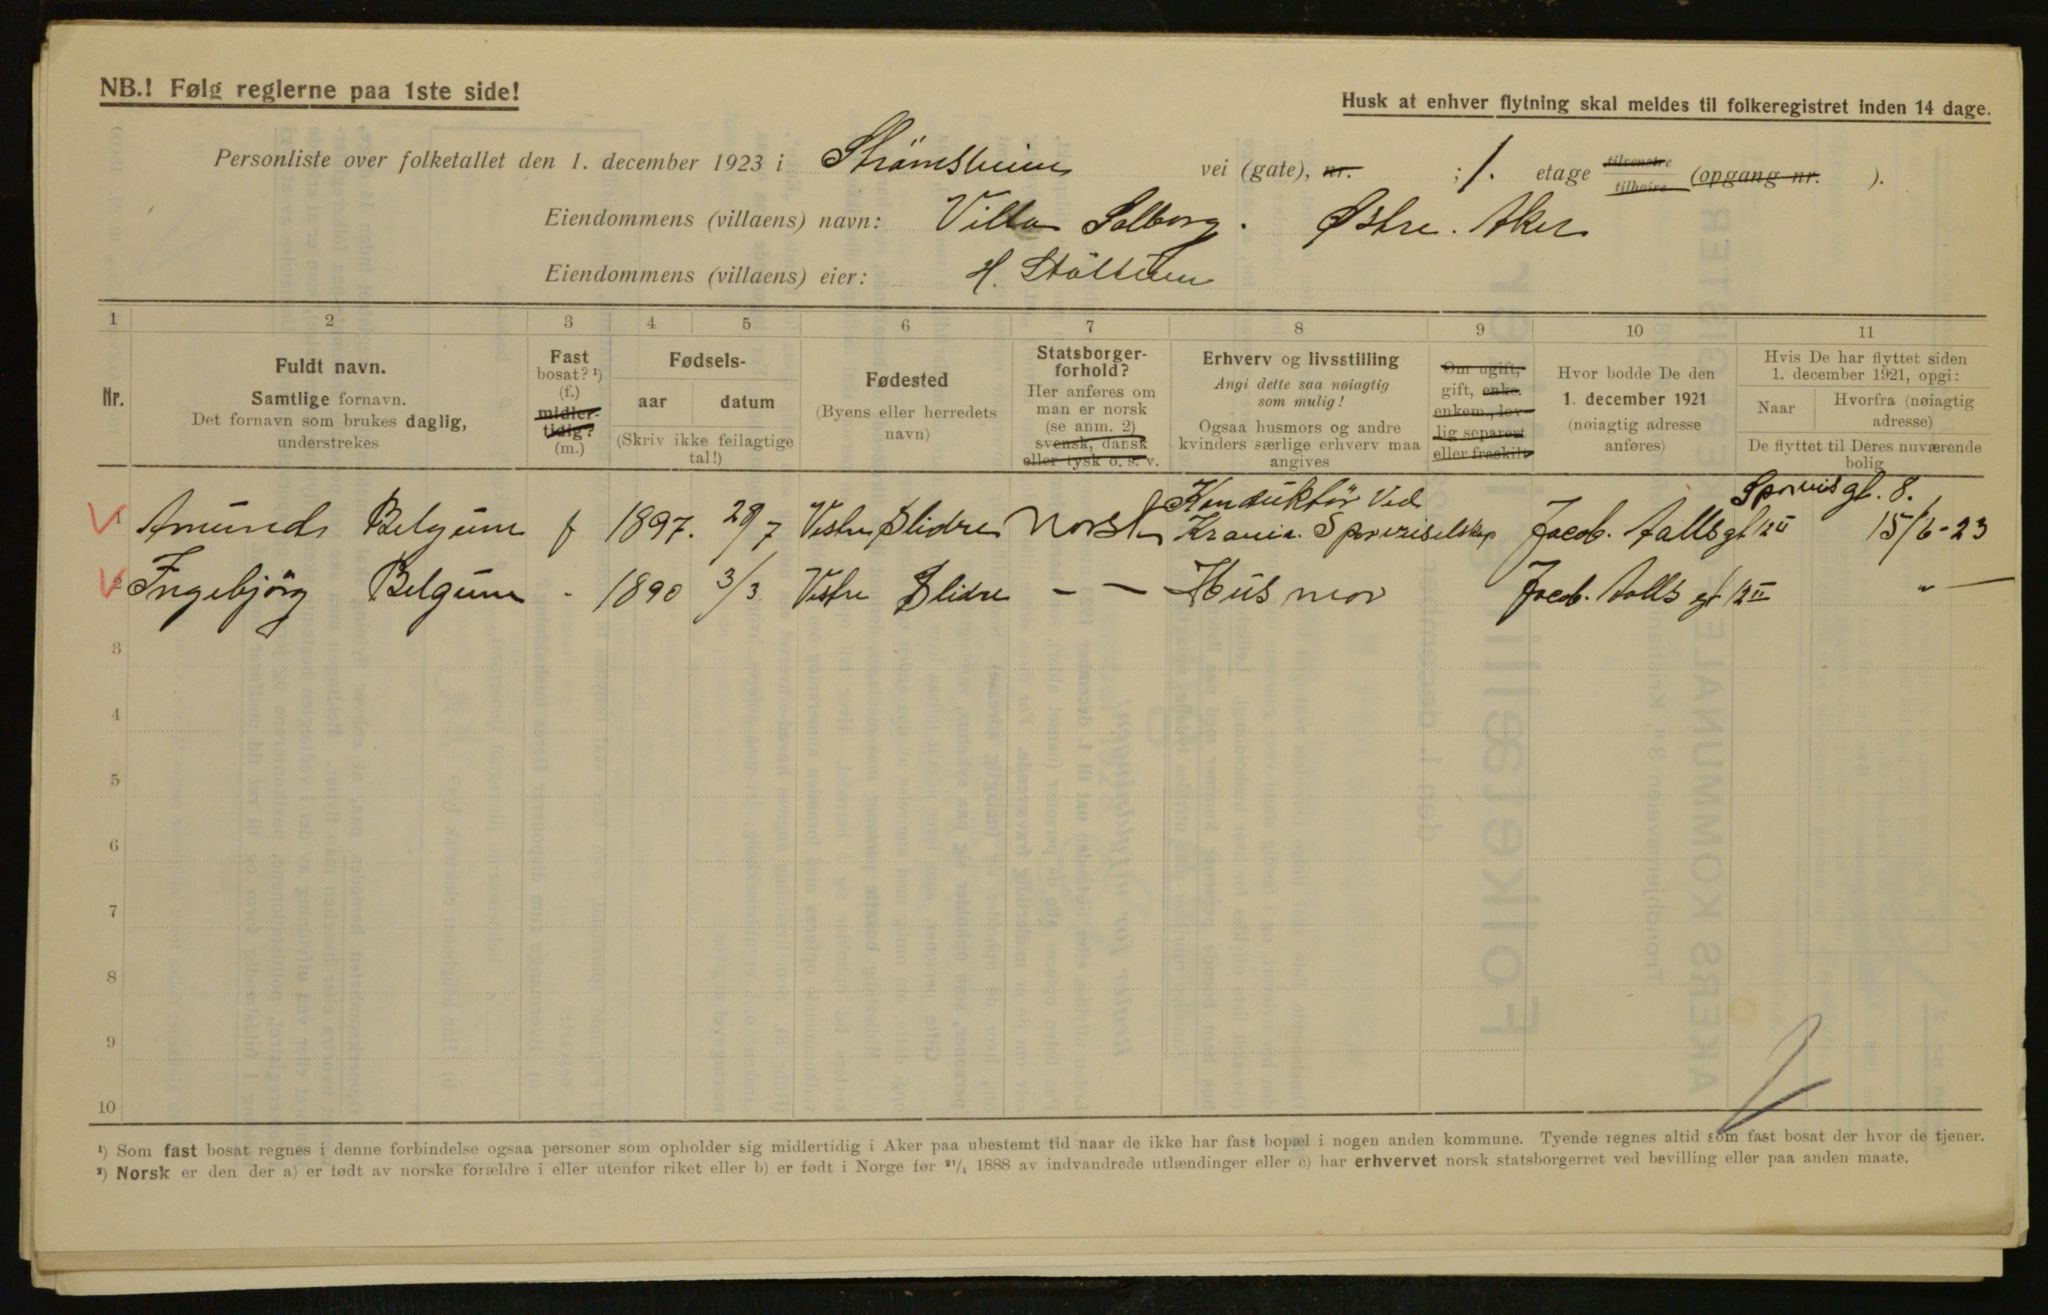 NB.! Følg reglerne paa 1ste side!
Husk at enhver flytning skal meldes til folkeregistret inden 14 dage.
Personliste over folketallet den 1. december 1923 i Strømsheim vei (gate), nr. ; 1. etage tilvenstre tilhøire (opgang nr. ).
Eiendommens (villaens) navn: Villa Solborg. Østre. Aker
Eiendommens (villaens) eier: H.
1 2 3 4 5 6 7 8 9 10 11
Nr.
Fuldt navn.
Samtlige fornavn.
Det fornavn som brukes daglig,
understrekes
Fast
bosat? ¹)
(f.)
midler-
tidig?
(m.)
Fødsels-
aar datum
(Skriv ikke feilagtige
tal!)
Fødested
(Byens eller herredets
navn)
Statsborger-
forhold?
Her anføres om
man er norsk
(se anm. 2)
svensk, dansk
eller tysk o. s. v.
Erhverv og livsstilling
Angi dette saa nøiagtig
som mulig!
Ogsaa husmors og andre
kvinders særlige erhverv maa
angives
Om ugift,
gift, enke.
enkem., lov-
lig separert
eller fraskilt
Hvor bodde De den
1. december 1921
(nøiagtig adresse
anføres)
Hvis De har flyttet siden
1. december 1921, opgi:
Naar
Hvorfra (nøiagtig
adresse)
De flyttet til Deres nuværende
bolig
Konduktör Ved
gt. 8.
1 Amund Belgum f 1897. 29/7 Vestre Slidre Norsk Krania. Sporveiselskap Jacob. Aallsgt 12 II 15/6-23
2 Ingebjörg Belgum - 1890 3/3 Vestre Slidre - — Husmor Jacob. Aalls gt 12 II „ —
3
4
5
6
7
8
9
10
¹) Som fast bosat regnes i denne forbindelse ogsaa personer som opholder sig midlertidig i Aker paa ubestemt tid naar de ikke har fast bopæl i nogen anden kommune. Tyende regnes altid som fast bosat der hvor de tjener.
²) Norsk er den der a) er født av norske forældre i eller utenfor riket eller b) er født i Norge før ²¹/₄ 1888 av indvandrede utlændinger eller c) har erhvervet norsk statsborgerret ved bevilling eller paa anden maate.